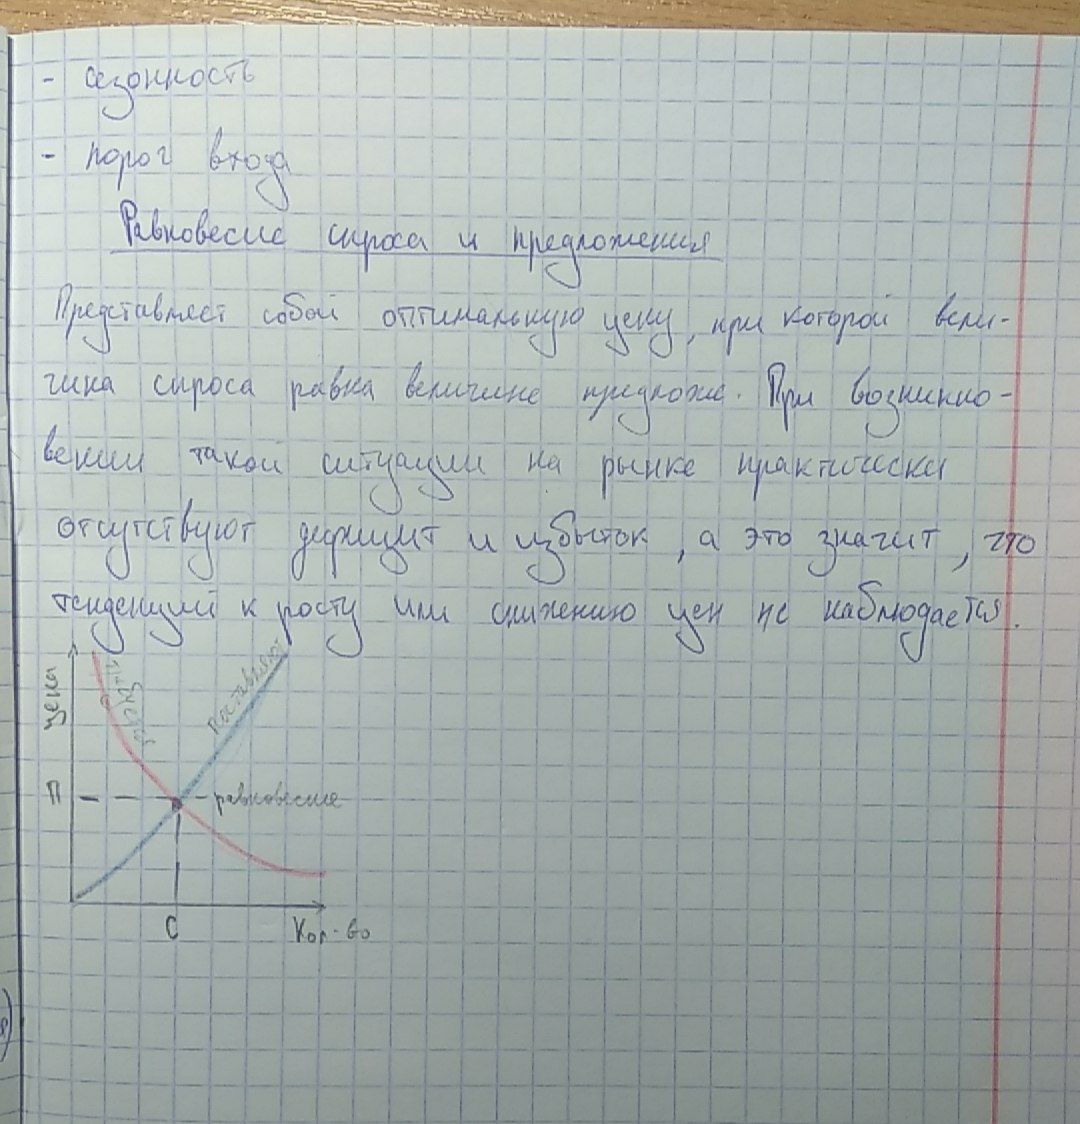 - сезонность
- порог входа
Равновесие спроса и предложения
Представляет собой оптимальную цену, при которой вели-
чина спроса равна величине предлож. При возникно-
вении такой ситуации на рынке практически
отсутствуют дефицит и избыток, а это значит, что
тенденций к росту или снижению цен не наблюдается.
цена
Поставляют
П
равновесие
С
Кол-во